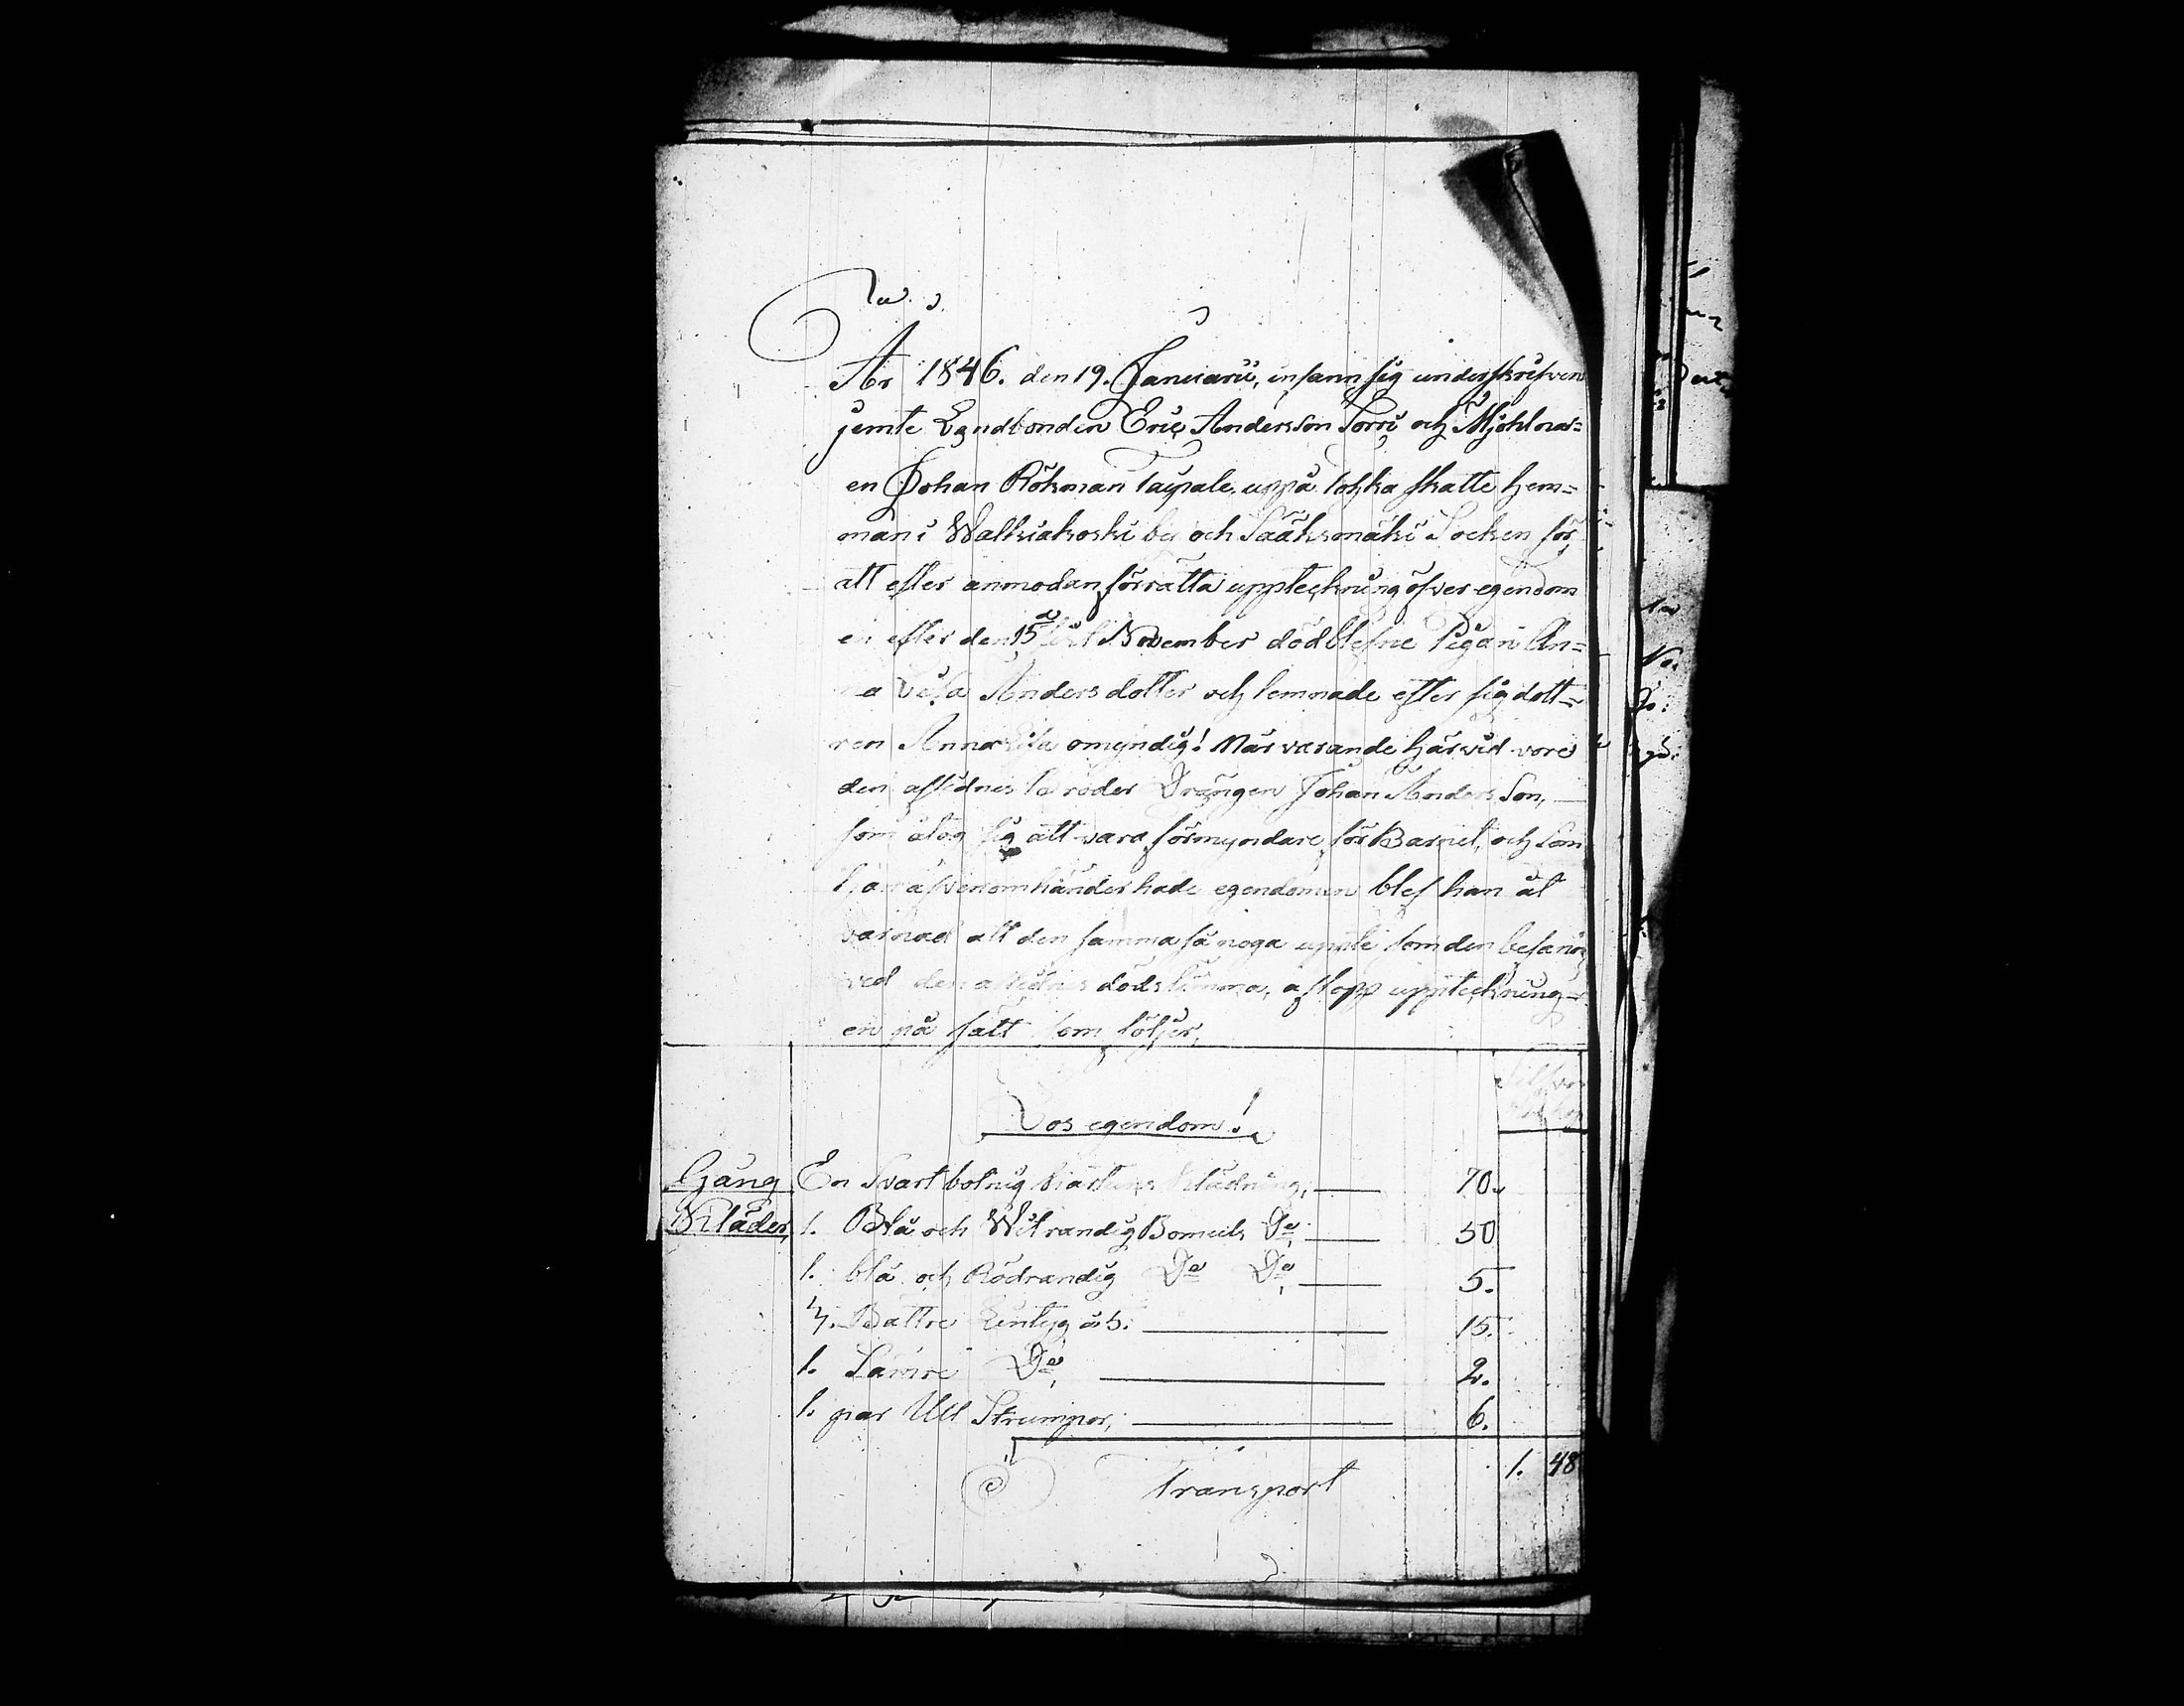 År 1846. den 19. Januarii, infann sig underskrifven
jemte Landbonden Eric Andersson Torri och Mjöhlnar=
en Johan Rökman Taipale, uppå Tohka skatte hem=
man i Walkiakoski by och Sääksmäki Socken för
att efter anmodan förrätta uppteckning öfver egendom
en efter den 15de November dödblefne Pigan An=
na Lisa Andersdotter och lemnade efter sig dott=
ren Anna Lisa omyndig! När varande härvid vore
den aflidnes Broder Drängen Johan Andersson,
som åtog sig att vara förmyndare för Barnet, och som
han äfven om händer hade egendomen blef han åt
varnad att den samma så noga uppte som den befans
ved den aflidnes dödstimma, aflopp uppteckning=
en på sätt som följer,
Silfver
Lös egendom!
Gång En Svart botnig Klädning, 70.
Kläder, 1. Blå och Witrandig Bomuls Do, 50
1. blå och Rödrandig Do Do, 5.
4. Bättre Lintyg à 5. 15.
1. Sämre Do, 2.
1. par Ull Strumpor, 6.
1. 48
Transport